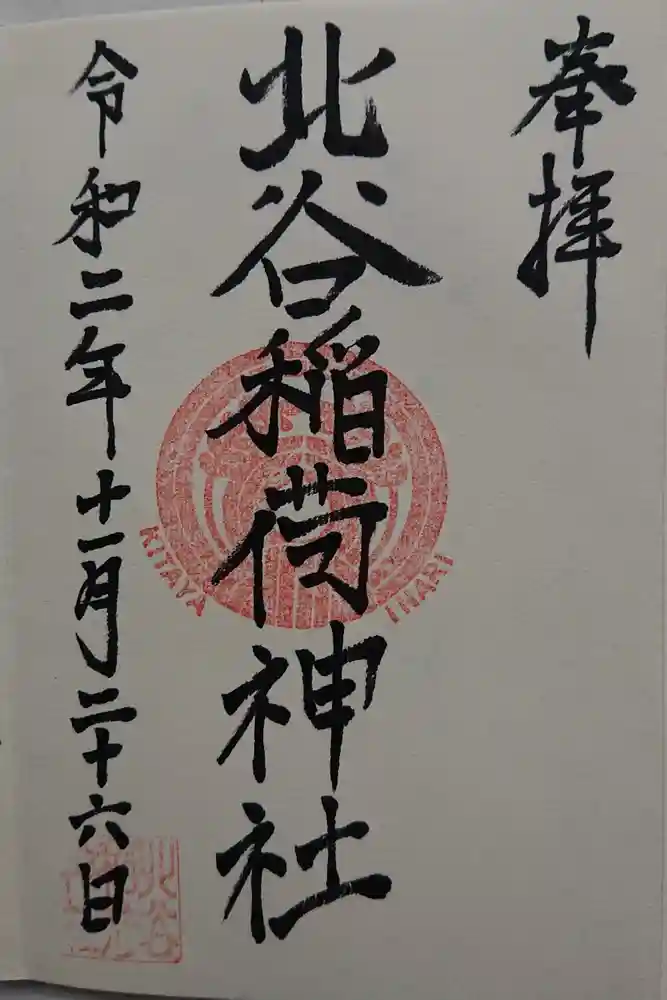 奉拝
北谷稲荷神社
令和二年十一月二十六日
KITAYA INARI